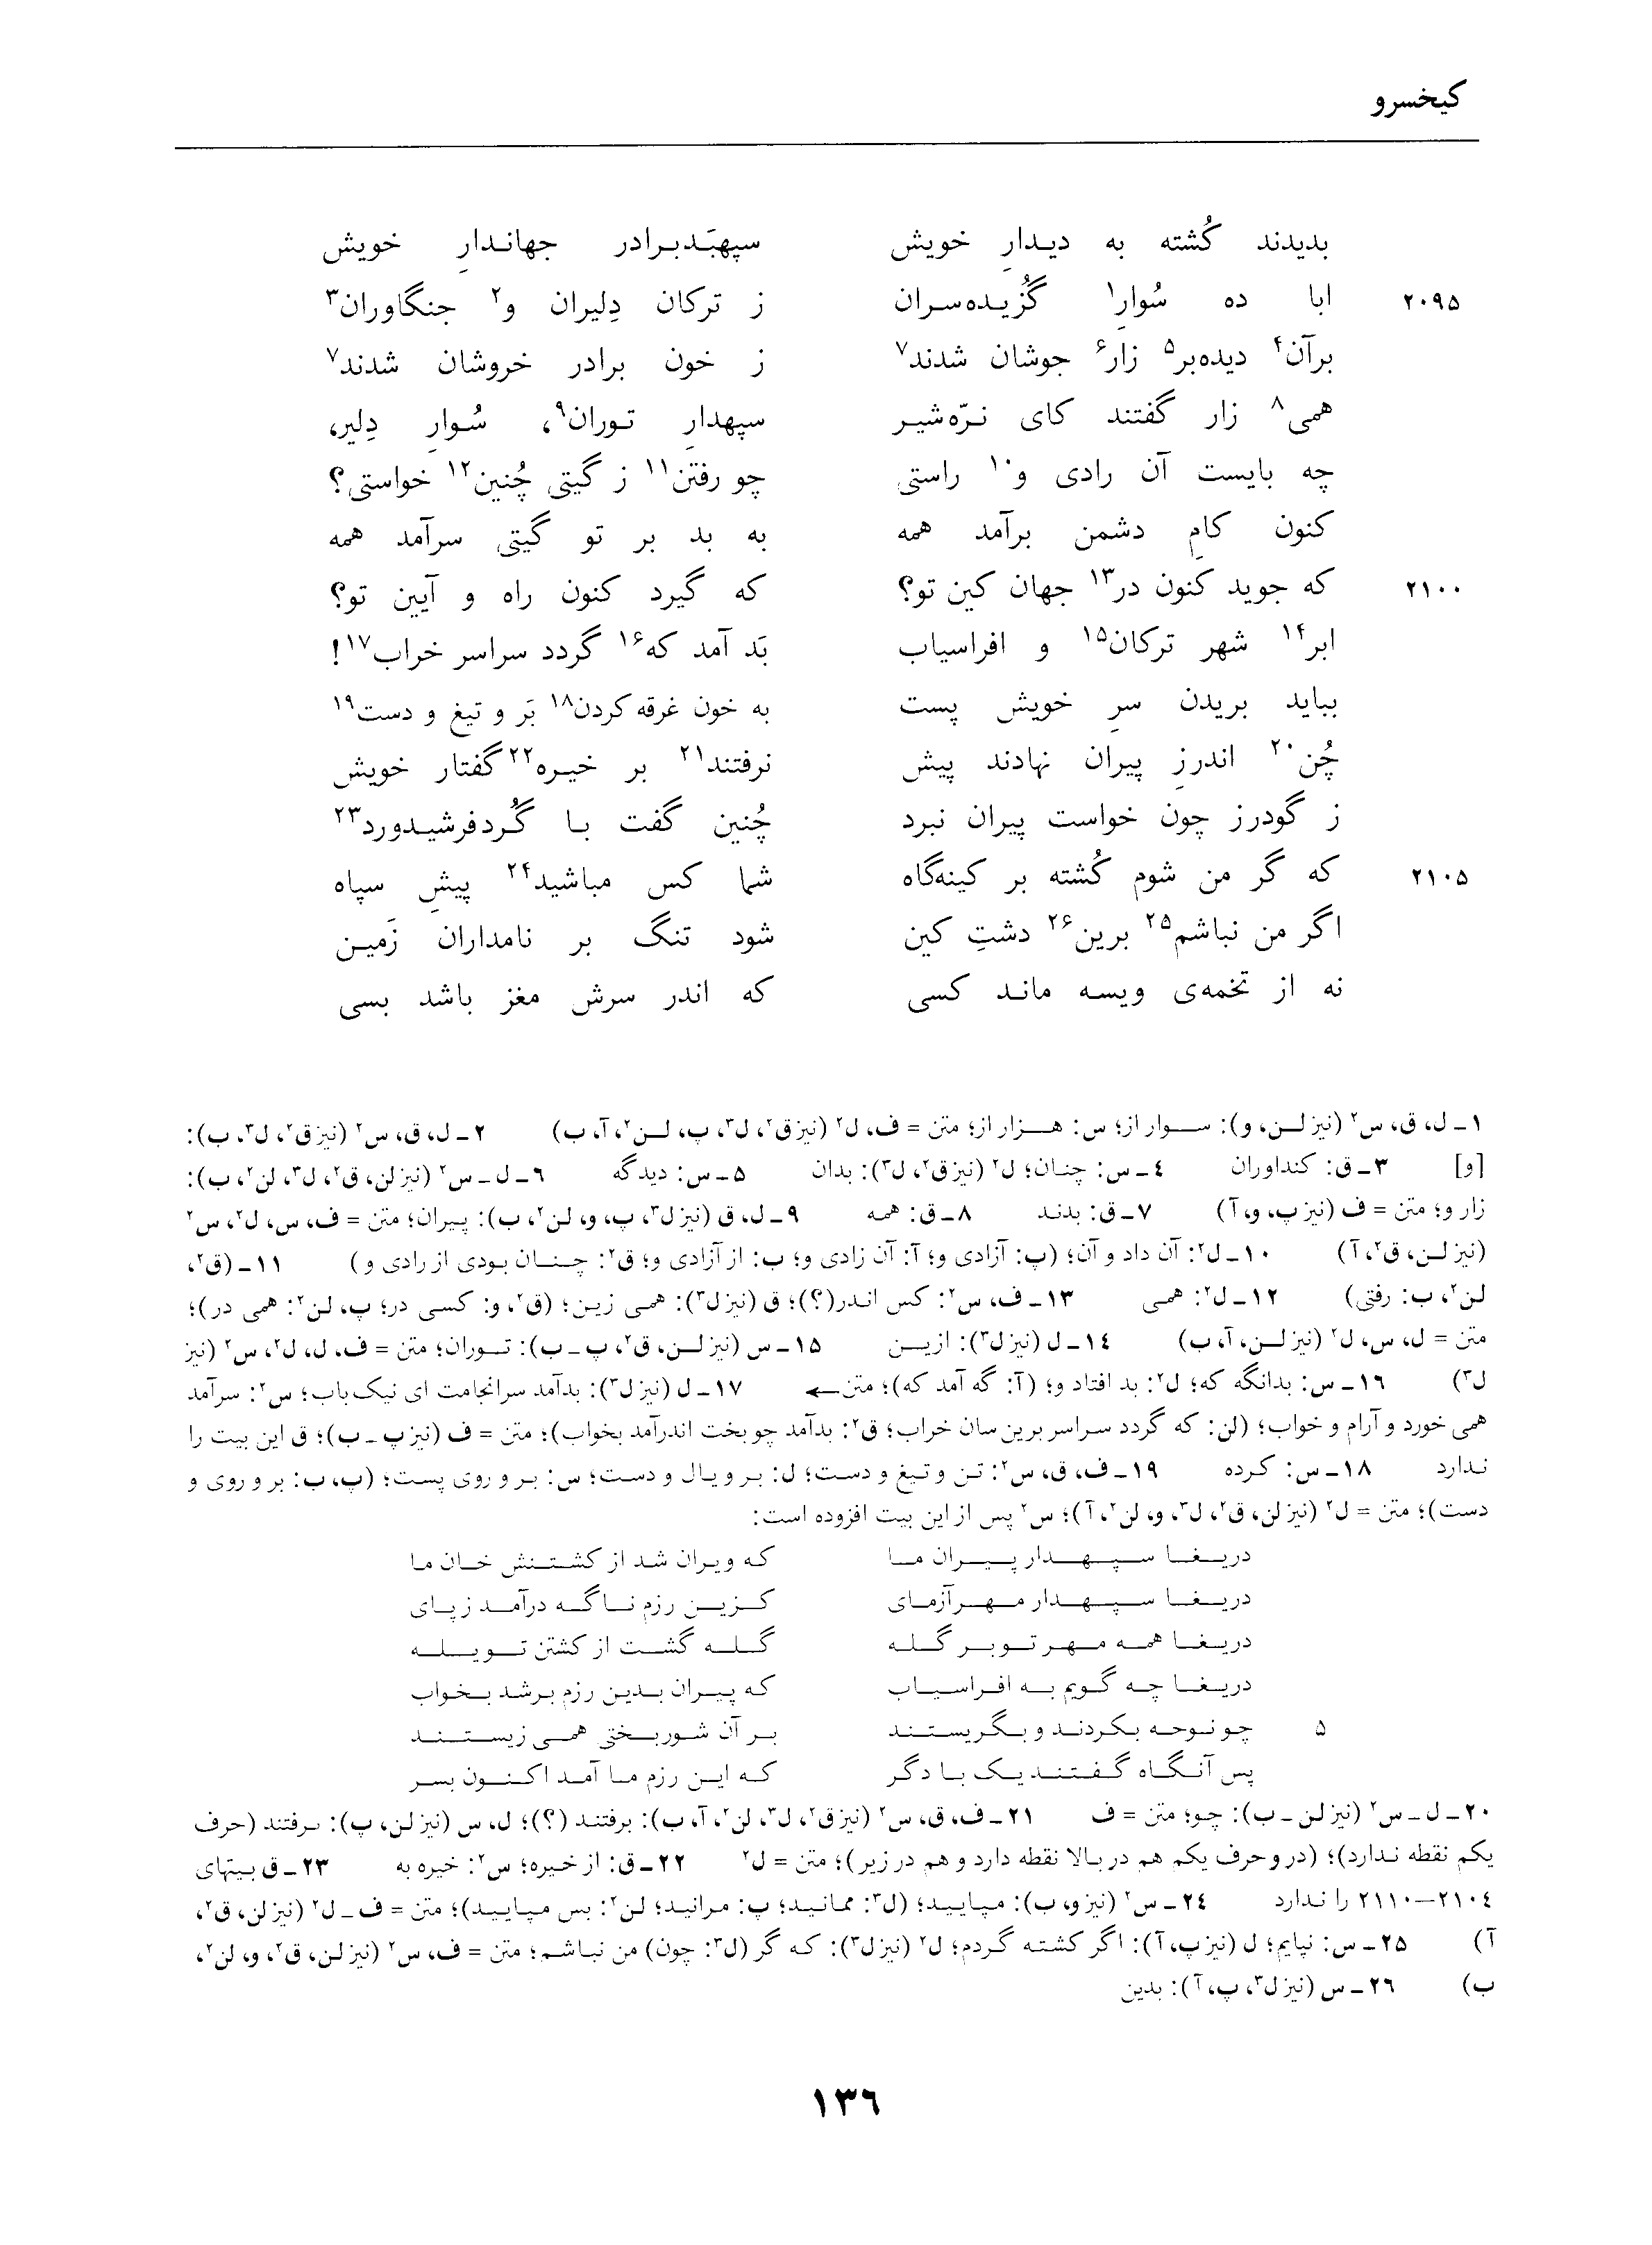 کیخسرو
بدیدند کُشته به دیدارِ خویش سپهبَدبرادر جهاندارِ خویش
۲۰۹۵ ابا ده سُوارِ۱ گُزیده‌سران ز ترکان دِلیران و۲ جنگاوران۳
برآن۴ دیده‌بر۵ زار۶ جوشان شدند۷ ز خون برادر خروشان شدند۷
همی۸ زار گفتند کای نرّه‌شیر سپهدارِ توران۹، سُوارِ دِلیر،
چه بایست آن رادی و۱۰ راستی چو رفتن۱۱ ز گیتی چُنین۱۲ خواستی؟
کنون کامِ دشمن برآمد همه به بد بر تو گیتی سرآمد همه
۲۱۰۰ که جوید کنون در۱۳ جهان کین تو؟ که گیرد کنون راه و آیین تو؟
ابر۱۴ شهر ترکان۱۵ و افراسیاب بَد آمد که۱۶ گردد سراسر خراب۱۷!
بباید بریدن سرِ خویش پست به خون غرقه کردن۱۸ بَر و تیغ و دست۱۹
چُن۲۰ اندرزِ پیران نهادند پیش نرفتند۲۱ بر خیره۲۲ گفتار خویش
ز گودرز چون خواست پیران نبرد چُنین گفت با گُردفرشیدورد۲۳
۲۱۰۵ که گر من شوم کُشته بر کینه‌گاه شما کس مباشید۲۴ پیشِ سپاه
اگر من نباشم۲۵ برین۲۶ دشتِ کین شود تنگ بر نامداران زَمین
نه از تخمه‌ی ویسه ماند کسی که اندر سرش مغز باشد بسی
۱ـ ل، ق، س۲ (نیز لن، و): سوار از؛ س: هزار از؛ متن = ف، ل۲ (نیز ق۲، ل۳، پ، لن۲، آ، ب) ۲ـ ل، ق، س۲ (نیز ق۲، ل۳، ب):
[و] ۳ـ ق: کنداوران ۴ـ س: چنان؛ ل۲ (نیز ق۲، ل۳): بدان ۵ـ س: دیدگه ۶ـ ل ـ س۲ (نیز لن، ق۲، ل۳، لن۲، ب):
زار و؛ متن = ف (نیز پ، و، آ) ۷ـ ق: بدند ۸ـ ق: همه ۹ـ ل، ق (نیز ل۳، پ، و، لن۲، ب): پیران؛ متن = ف، س، ل۲، س۲
(نیز لن، ق۲، آ) ۱۰ـ ل۲: آن داد و آن؛ (پ: آزادی و؛ آ: آن زادی و؛ ب: از آزادی و؛ ق۲: چنان بودی از رادی و) ۱۱ـ (ق۲،
لن۲، ب: رفتی) ۱۲ـ ل۲: همی ۱۳ـ ف، س۲: کس اندر(؟)؛ ق (نیز ل۳): همی زین؛ (ق۲، و: کسی در؛ پ، لن۲: همی در)؛
متن = ل، س، ل۲ (نیز لن، آ، ب) ۱۴ـ ل (نیز ل۳): ازین ۱۵ـ س (نیز لن، ق۲، پ ـ ب): توران؛ متن = ف، ل، ل۲، س۲ (نیز
ل۳) ۱۶ـ س: بدانگه که؛ ل۲: بد افتاد و؛ (آ: گه آمد که)؛ متن← ۱۷ـ ل (نیز ل۳): بدآمد سرانجامت ای نیک‌باب؛ س۲: سرآمد
همی خورد و آرام و خواب؛ (لن: که گردد سراسر برین سان خراب؛ ق۲: بدآمد چو بخت اندرآمد بخواب)؛ متن = ف (نیز پ ـ ب)؛ ق این بیت را
ندارد ۱۸ـ س: کرده ۱۹ـ ف، ق، س۲: تن و تیغ و دست؛ ل: بر و یال و دست؛ س: بر و روی پست؛ (پ، ب: بر و روی و
دست)؛ متن = ل۲ (نیز لن، ق۲، ل۳، و، لن۲، آ)؛ س۲ پس از این بیت افزوده است:
دریغا سپهدار پیران ما که ویران شد از کشتنش خان ما
دریغا سپهدار مهرآزمای کزین رزم ناگه درآمد ز پای
دریغا همه مهر تو بر گله گله گشت از کشتن تو یله
دریغا چه گویم به افراسیاب که پیران بدین رزم برشد بخواب
۵ چو نوحه بکردند و بگریستند بر آن شوربختی همی زیستند
پس آنگاه گفتند یک با دگر که این رزم ما آمد اکنون بسر
۲۰ـ ل ـ س۲ (نیز لن ـ ب): چو؛ متن = ف ۲۱ـ ف، ق، س۲ (نیز ق۲، ل۳، لن۲، آ، ب): برفتند (؟)؛ ل، س (نیز لن، پ): ٮرفتند (حرف
یکم نقطه ندارد)؛ (در و حرف یکم هم در بالا نقطه دارد و هم در زیر)؛ متن = ل۲ ۲۲ـ ق: از خیره؛ س۲: خیره به ۲۳ـ ق بیتهای
۲۱۰۴—۲۱۱۰ را ندارد ۲۴ـ س۲ (نیز و، ب): مپایید؛ (ل۳: ممانید؛ پ: مرانید؛ لن۲: بس مپایید)؛ متن = ف ـ ل۲ (نیز لن، ق۲،
آ) ۲۵ـ س: نپایم؛ ل (نیز پ، آ): اگر کشته گردم؛ ل۲ (نیز ل۳): که گر (ل۳: چون) من نباشم؛ متن = ف، س۲ (نیز لن، ق۲، و، لن۲،
ب) ۲۶ـ س (نیز ل۳، پ، آ): بدین
۱۳۶